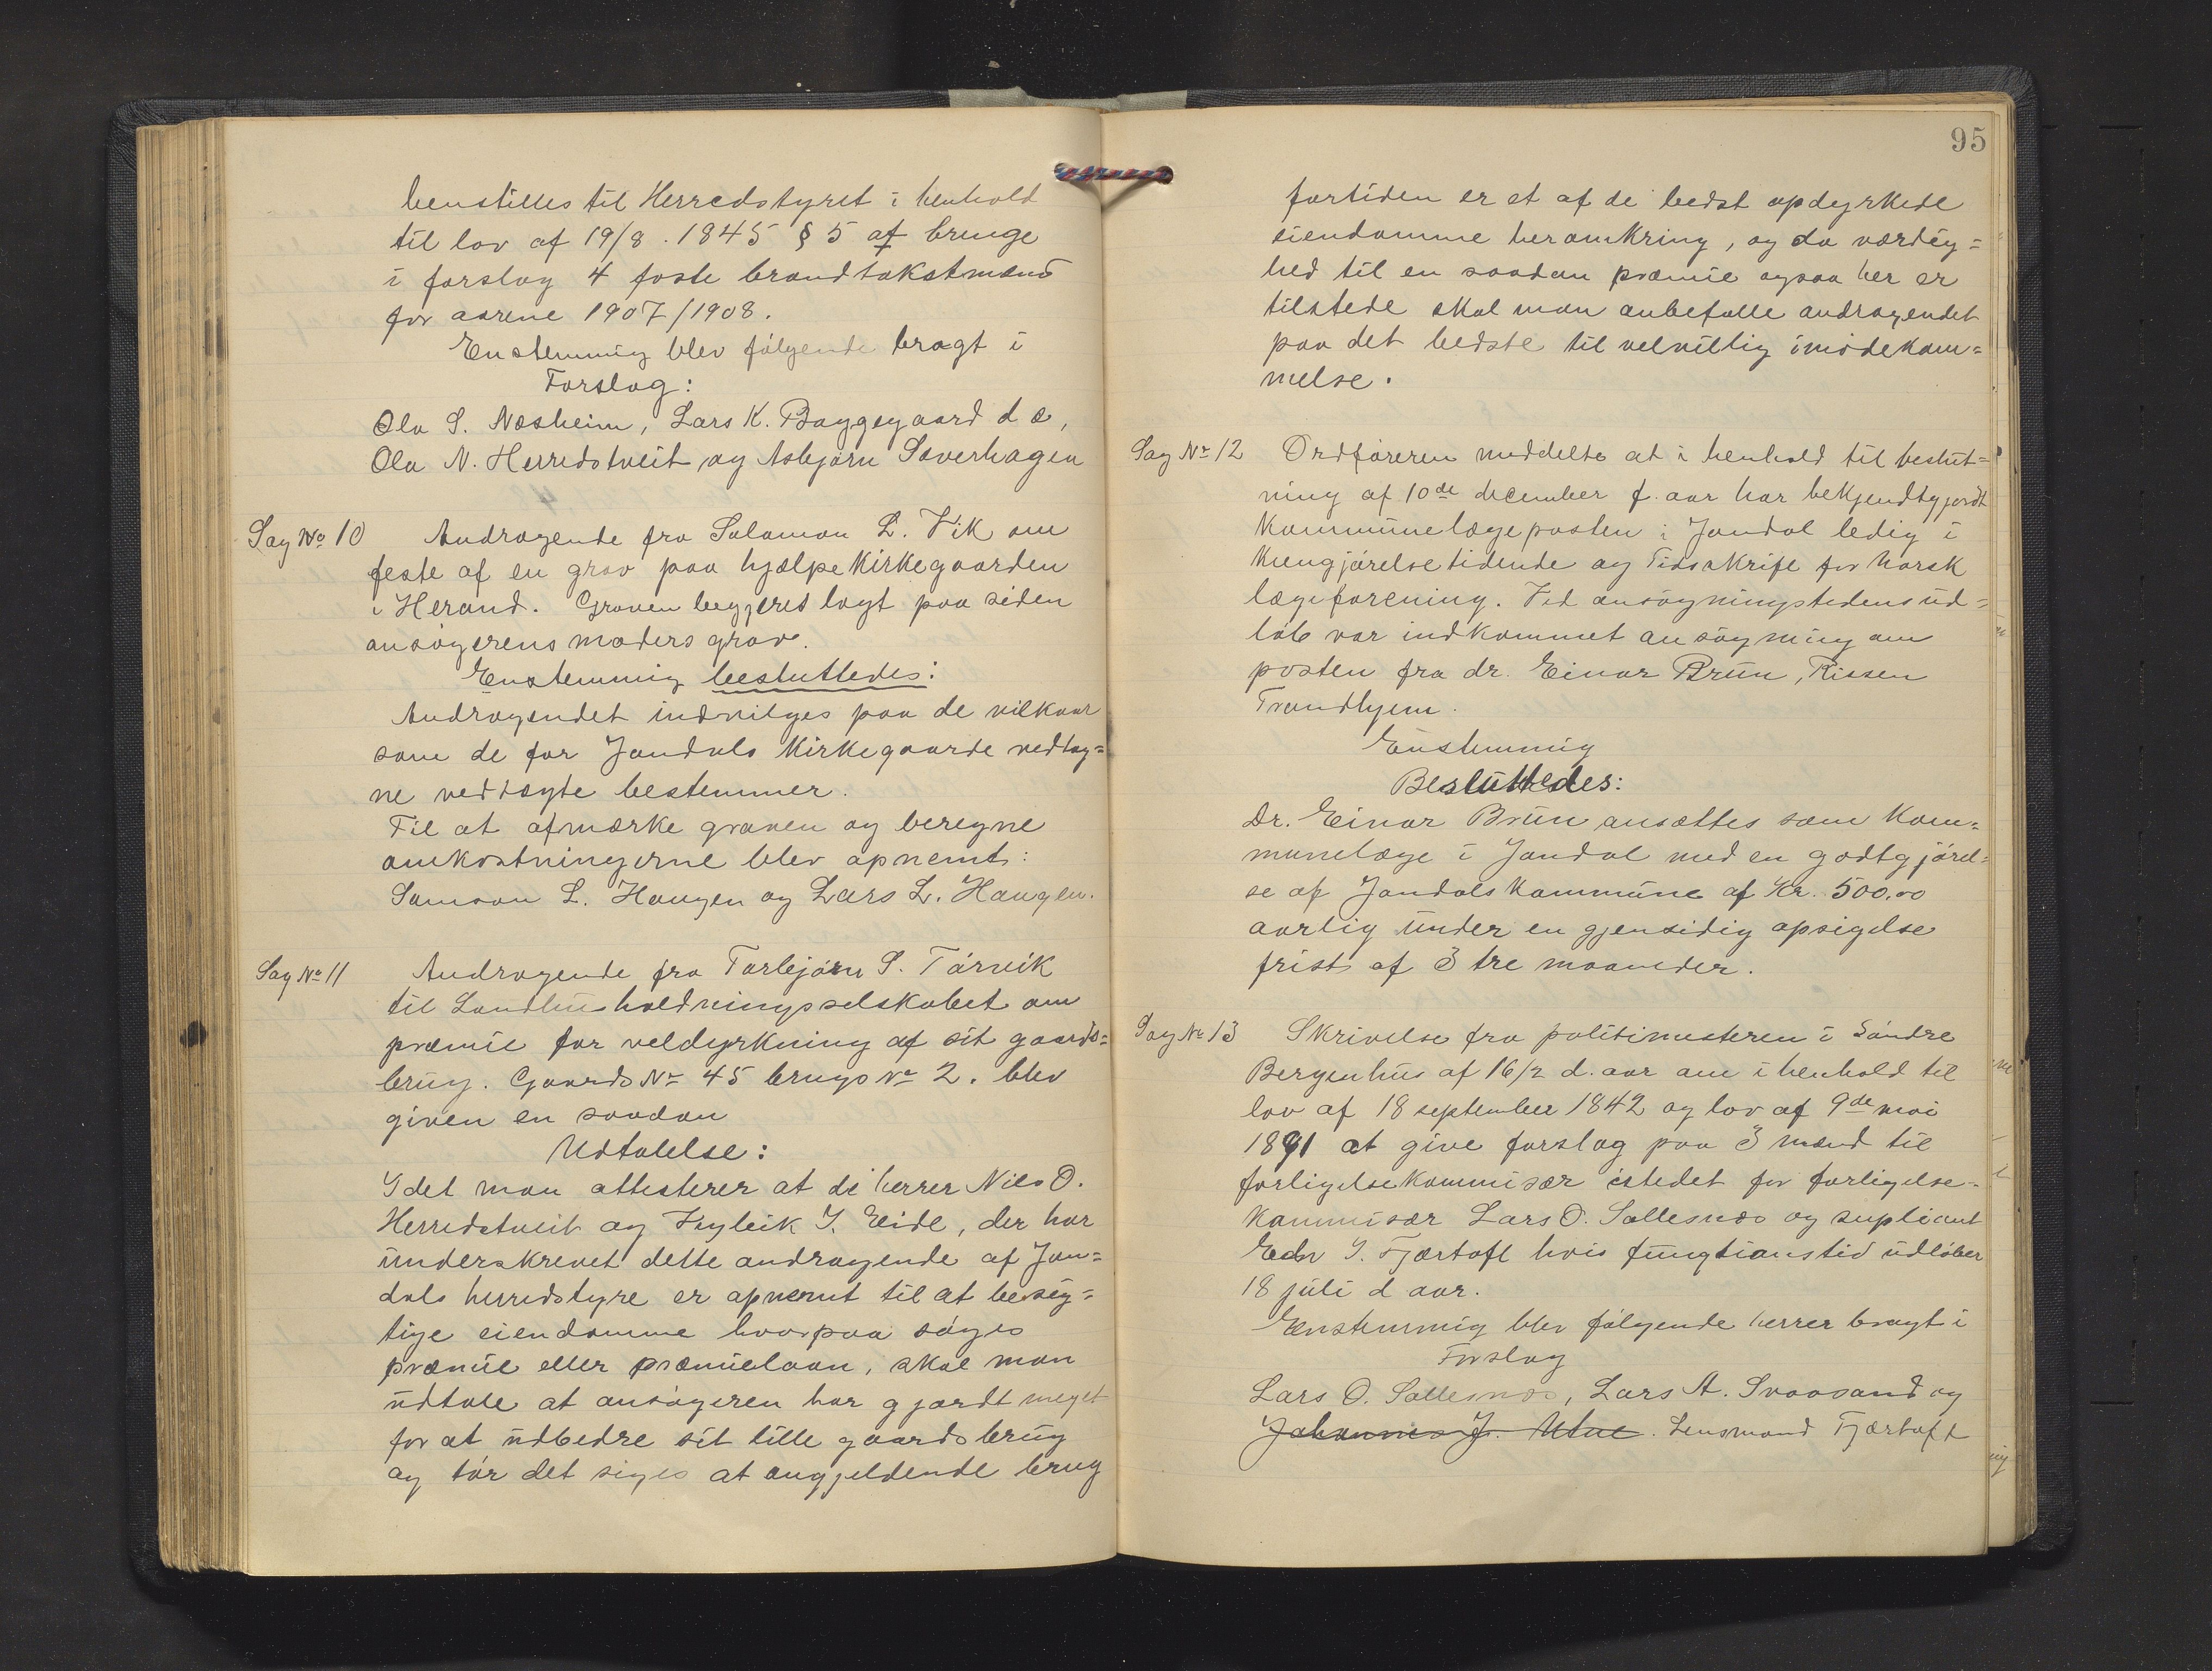 henstilles til Herredstyret i henhold
til lov af 19/8. 1845 § 5 af bringe
i forslag 4 faste brandtakstmænd
for aarene 1907/1908.
Enstemmig blev følgende bragt i
Forslag:
Ola S. Næsheim, Lars K. Byggegaard d æ,
Ola N. Herredstveit og Asbjørn Saverhagen
Sag No 10 Andragende fra Salamon L. Vik om
feste af en grav paa hjælpekirkegaarden
i Herand. Graven begjæres lagt paa siden
ansøgerens moders grav.
Enstemmig besluttedes:
Andragendet indvilges paa de vilkaar
som de for Jondals Kirkegaarde vedtag=
ne vedtægte bestemmer.
Til at afmærke graven og beregne
omkostningerne blev opnemt:
Samson L. Haugen og Lars L. Haugen.
Sag No 11 Andragende fra Torbjørn S. Tørvik
til Landhusholdningsselskabet om
præmie for veldyrkning af sit gaards=
brug. Gaards No 45 brugs No 2. blev
given en saadan
Udtalelse:
Idet man attesterer at de herrer Nils O.
Herredstveit og Tryleik J. Eide, der har
underskrevet dette andragende af Jon=
dals herredstyre er opnemt til at besig=
tige eiendomme hvorpaa søges
præmie eller præmielaan, skal man
udtale at ansøgeren har gjordt meget
for at udbedre sit lille gaardsbrug
og tør det siges at angjeldende brug
95
fortiden er et af de bedst opdyrkede
eiendomme heromkring, og da værdig=
hed til en saadan præmie ogsaa her er
tilstede skal man anbefalle andragendet
paa det bedste til velvillig imødekom=
melse.
Sag No 12 Ordføreren meddelte at i henhold til beslut=
ning af 10de december f. aar har bekjendtgjordt
Kommunelægeposten i Jondal ledig i
Kungjørelsetidende og Tidsskrift for Norsk
lægeforening. Ved ansøgningstedens ud=
løb var indkommet ansøgning om
posten fra dr. Einar Brun, Rissen
Trondhjem.
Enstemmig
Besluttedes:
Dr. Einar Brun ansættes som Kom=
munelæge i Jondal med en godtgjørel=
se af Jondals Kommune af Kr. 500.00
aarlig under en gjensidig opsigelse
frist af 3 tre maaneder.
Sag No 13 Skrivelse fra politimesteren i Søndre
Bergenhus af 16/2 d. aar om i henhold til
lov af 18 september 1842 og lov af 9de mai
1891 at give forslag paa 3 mænd til
forligelseskommisær istedet for forligelse=
kommisær Lars O. Sallesnæs og supliant
Edv. J. Fjærtoft hvis fungtianstid udløber
18 juli d aar.
Enstemmig blev følgende herrer bragt i
Forslag
Lars O. Sallesnæs, Lars A. Svaasand og
Johannes J. Utne. Lensmand Fjærtoft